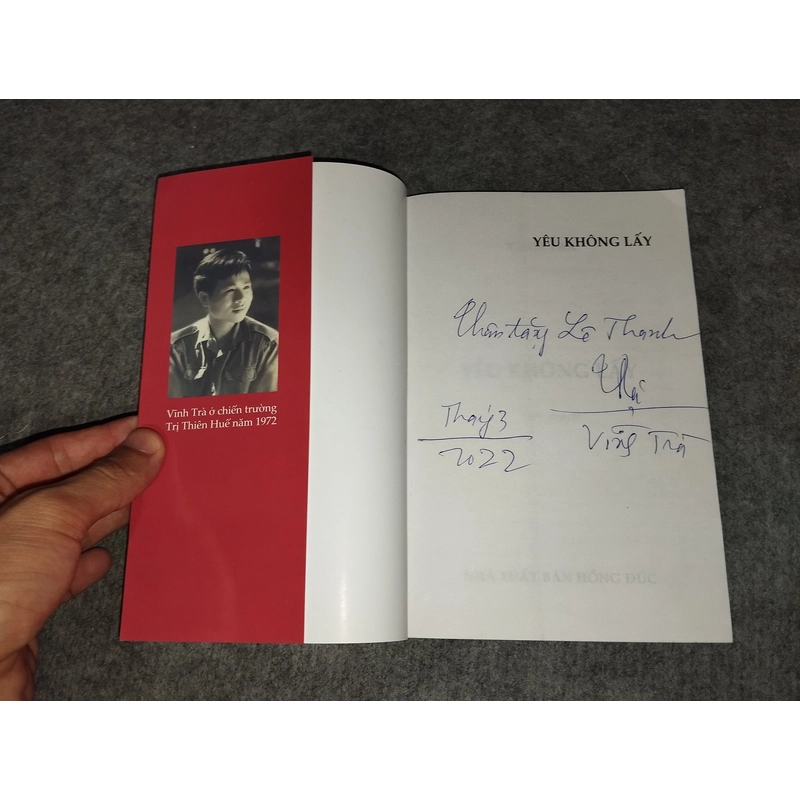 Vĩnh Trà ở chiến trường
Trị Thiên Huế năm 1972
YÊU KHÔNG LẤY
Thân tặng Lê Thanh
YÊU KHÔNG LẤY
Tháng 3
2022
Vĩnh Trà
NHÀ XUẤT BẢN HỒNG ĐỨC